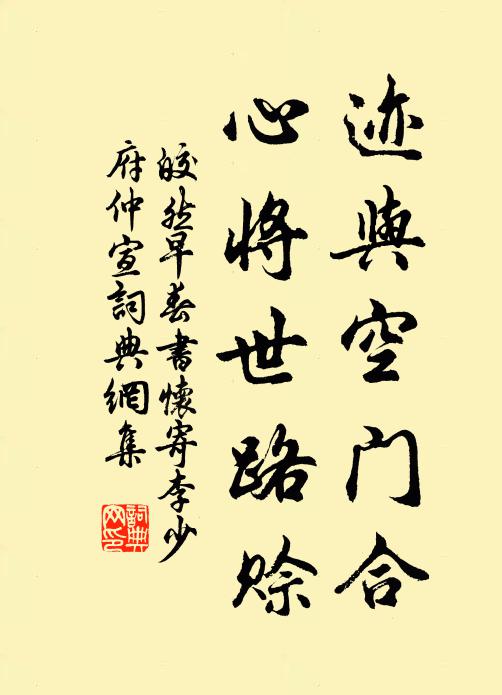 迹與空门合
心將世路赊
皎然早春書懷寄李少
府仲宣詞典網集
詞典
网印